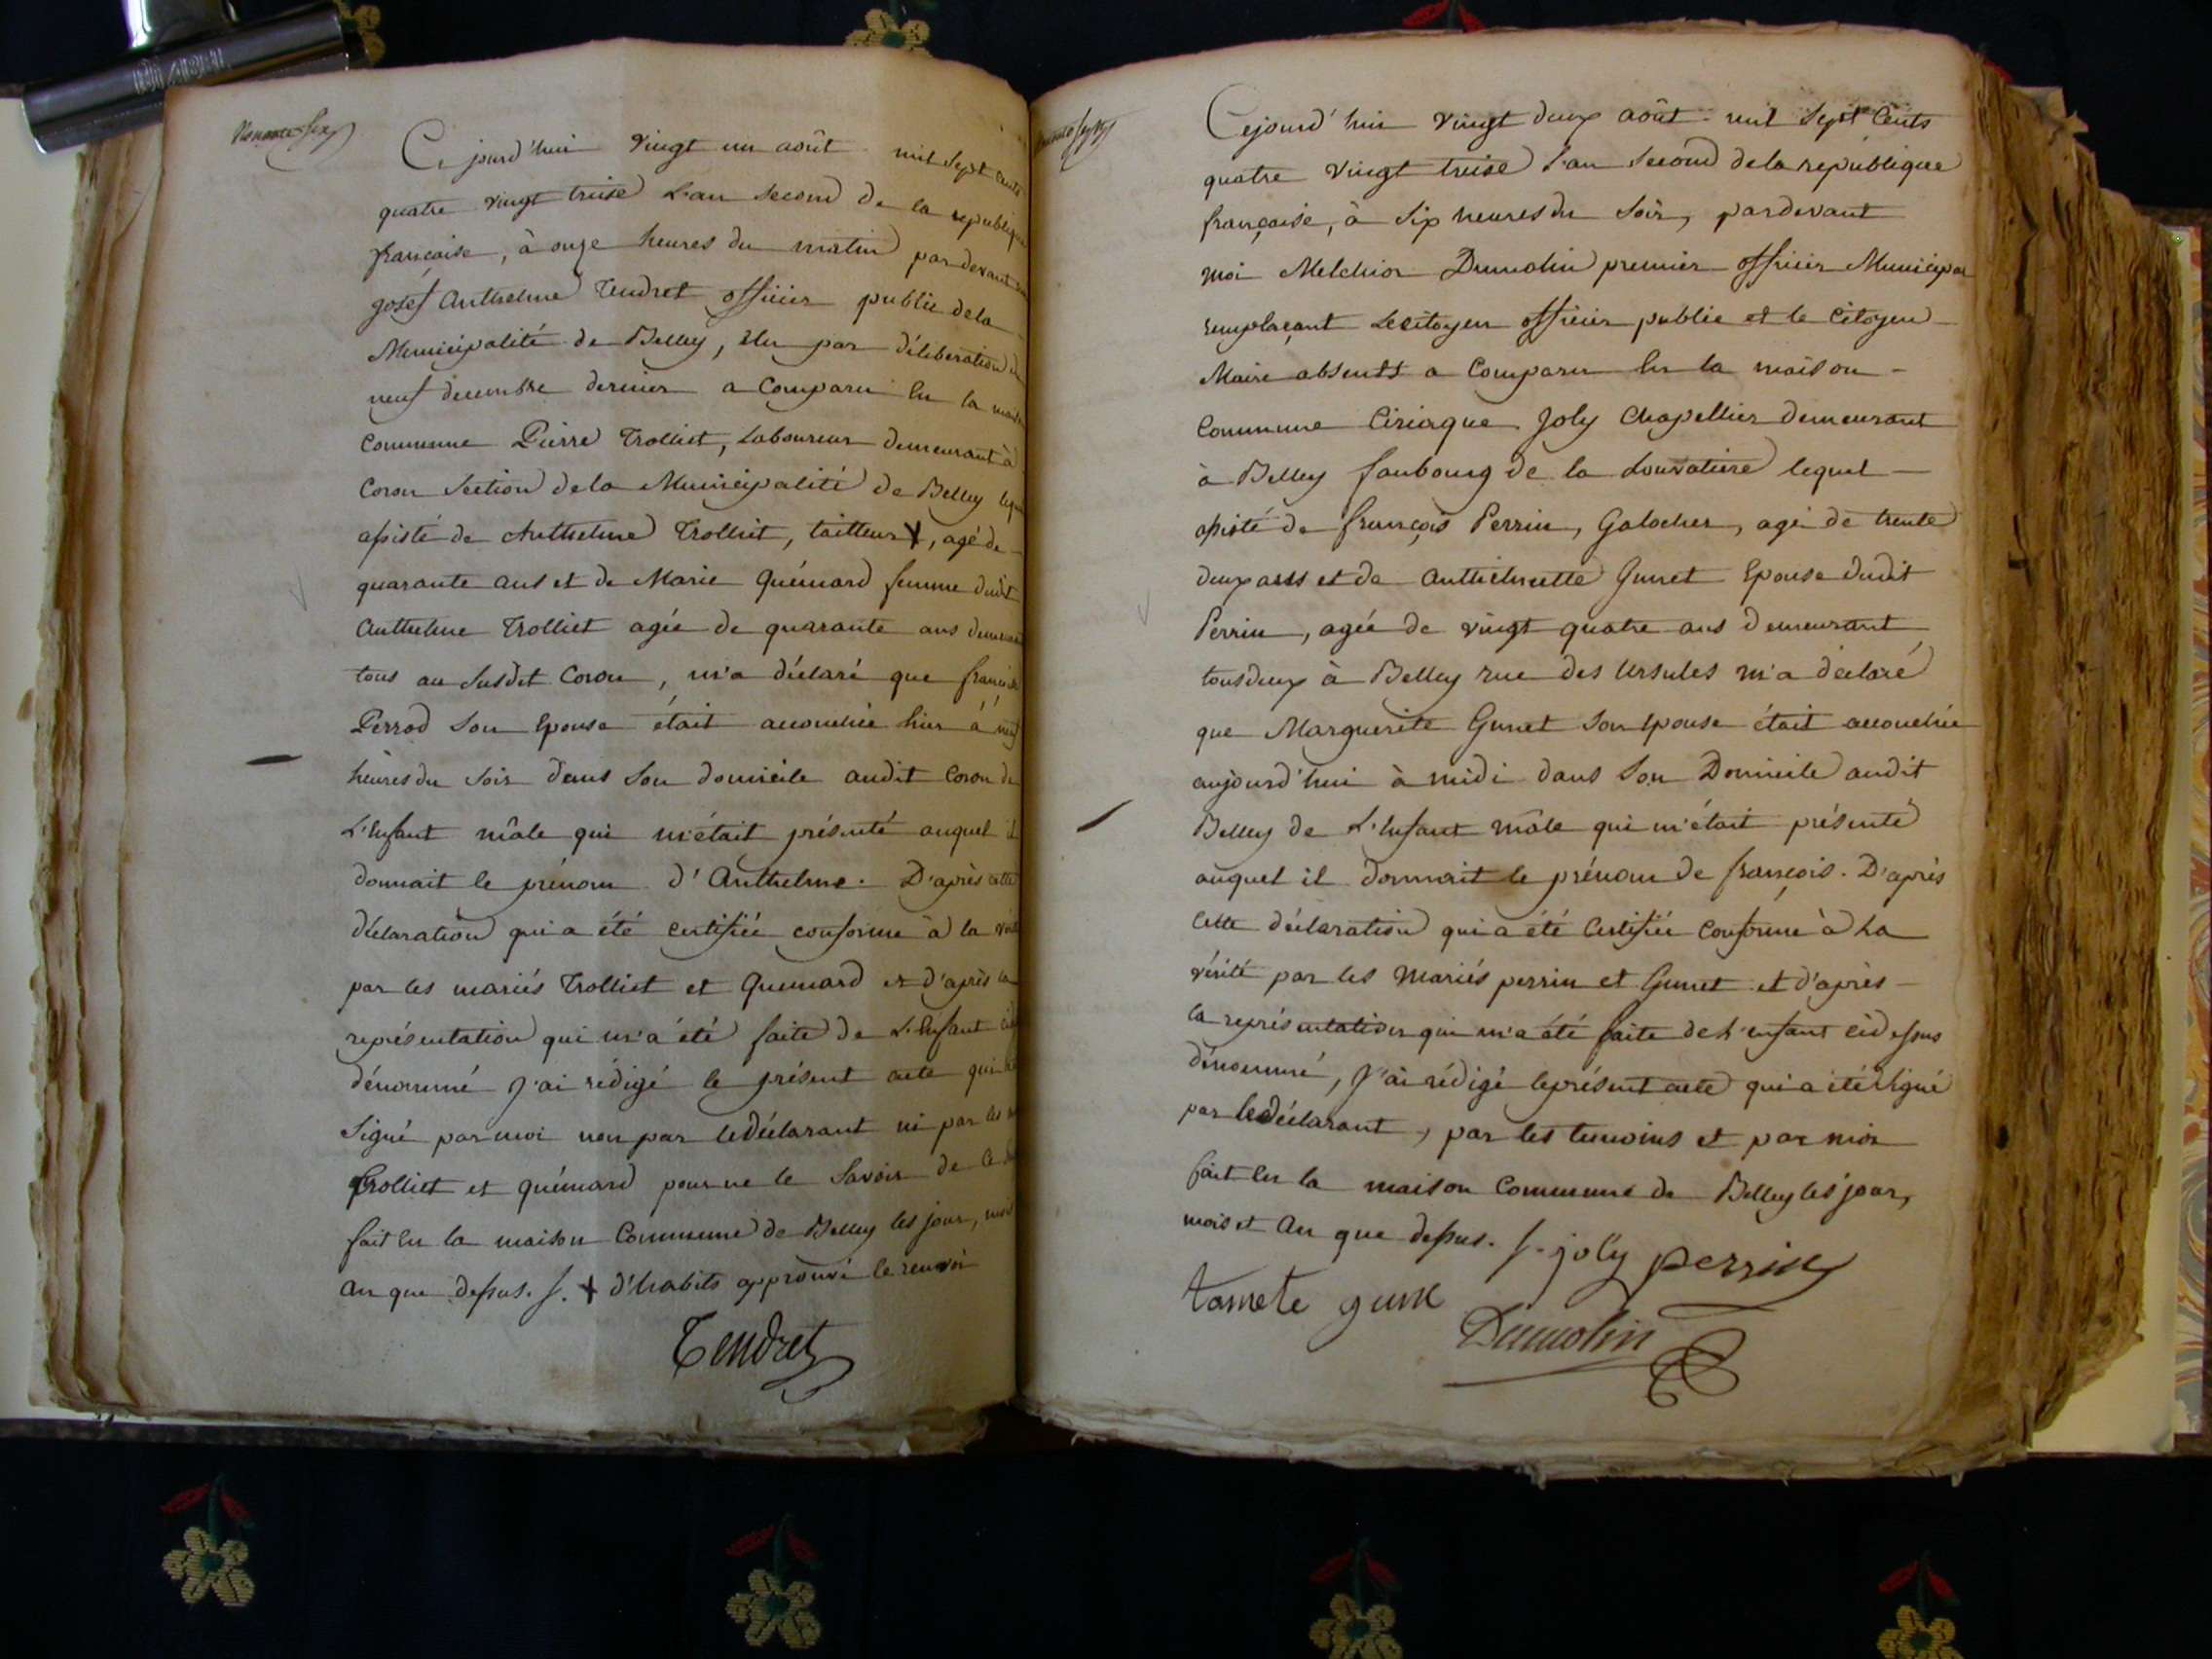 Nonante six
Ce jourd'hui vingt un août mil sept cents
quatre vingt treise L'an second de la republique
française, à onze heures du matin par devant
Josef Anthelme Tendret officier public de la
Municipalité de Belley, élu par déliberation du
neuf decembre dernier a comparu En la maison
commune Pierre Trolliet, Laboureur demeurant à
Coron Section de la Municipalité de Belley lequel
assisté de Anthelme Trolliet, tailleur X, agé de
quarante ans et de Marie Quémard femme dudit
Anthelme Trolliet agée de quarante ans demeurant
tous au susdit Coron, m'a déclaré que
Perrod son Epouse était accouchée hier à neuf
heures du soir dans son domicile audit Coron de
L'Enfant mâle qui m'était présenté auquel il
donnait le prénom d'Anthelme. D'après cette
déclaration qui a été certifiée conforme à la
par les mariés Trolliet et Quemard et d'après la
représentation qui m'a été faite de L'Enfant
dénommé J'ai rédigé le présent acte qui
signé par moi non par le déclarant ni par les
Trolliet et quémard pour ne le savoir de ce
fait En la maison Commune de Belley les jour, mois
an que dessus. /. X d'habits approuvé le renvoi
Tendret
Cejourd'hui vingt deux août mil sept Cents
quatre vingt treise l'an second de la république
française, à six heures du soir, pardevant
moi Melchior Dumolin premier officier Municipal
remplaçant Le citoyen officier public et le Citoyen
Maire absents a Comparu En la maison
Commune Ciriaque Joly Chapellier demeurant
à Belley faubourg de la Louvatiere lequel
assisté de françois Perrin, Galocher, agé de trente
deux ans et de Anthelmette Gunet Epouse dudit
Perrin, agée de vingt quatre ans demeurant
tous deux à Belley rue des Ursules m'a déclaré
que Marguerite Gunet son Epouse était accouchée
aujourd'hui à midi dans son Domicile audit
Belley de L'Enfant mâle qui m'était présenté
auquel il donnait le prénom de françois. D'après
Cette déclaration qui a été Certifiée Conforme à La
vérité par les Mariés perrin et Gunet et d'après
la représentation qui m'a été faite de L'enfant cidessus
dénommé, J'ai rédigé le présent acte qui a été signé
par le déclarant, par les temoins et par moi
fait En la maison Commune de Belley les jour,
mois et An que dessus. /. joly perrin
tomete gune
Dumolin